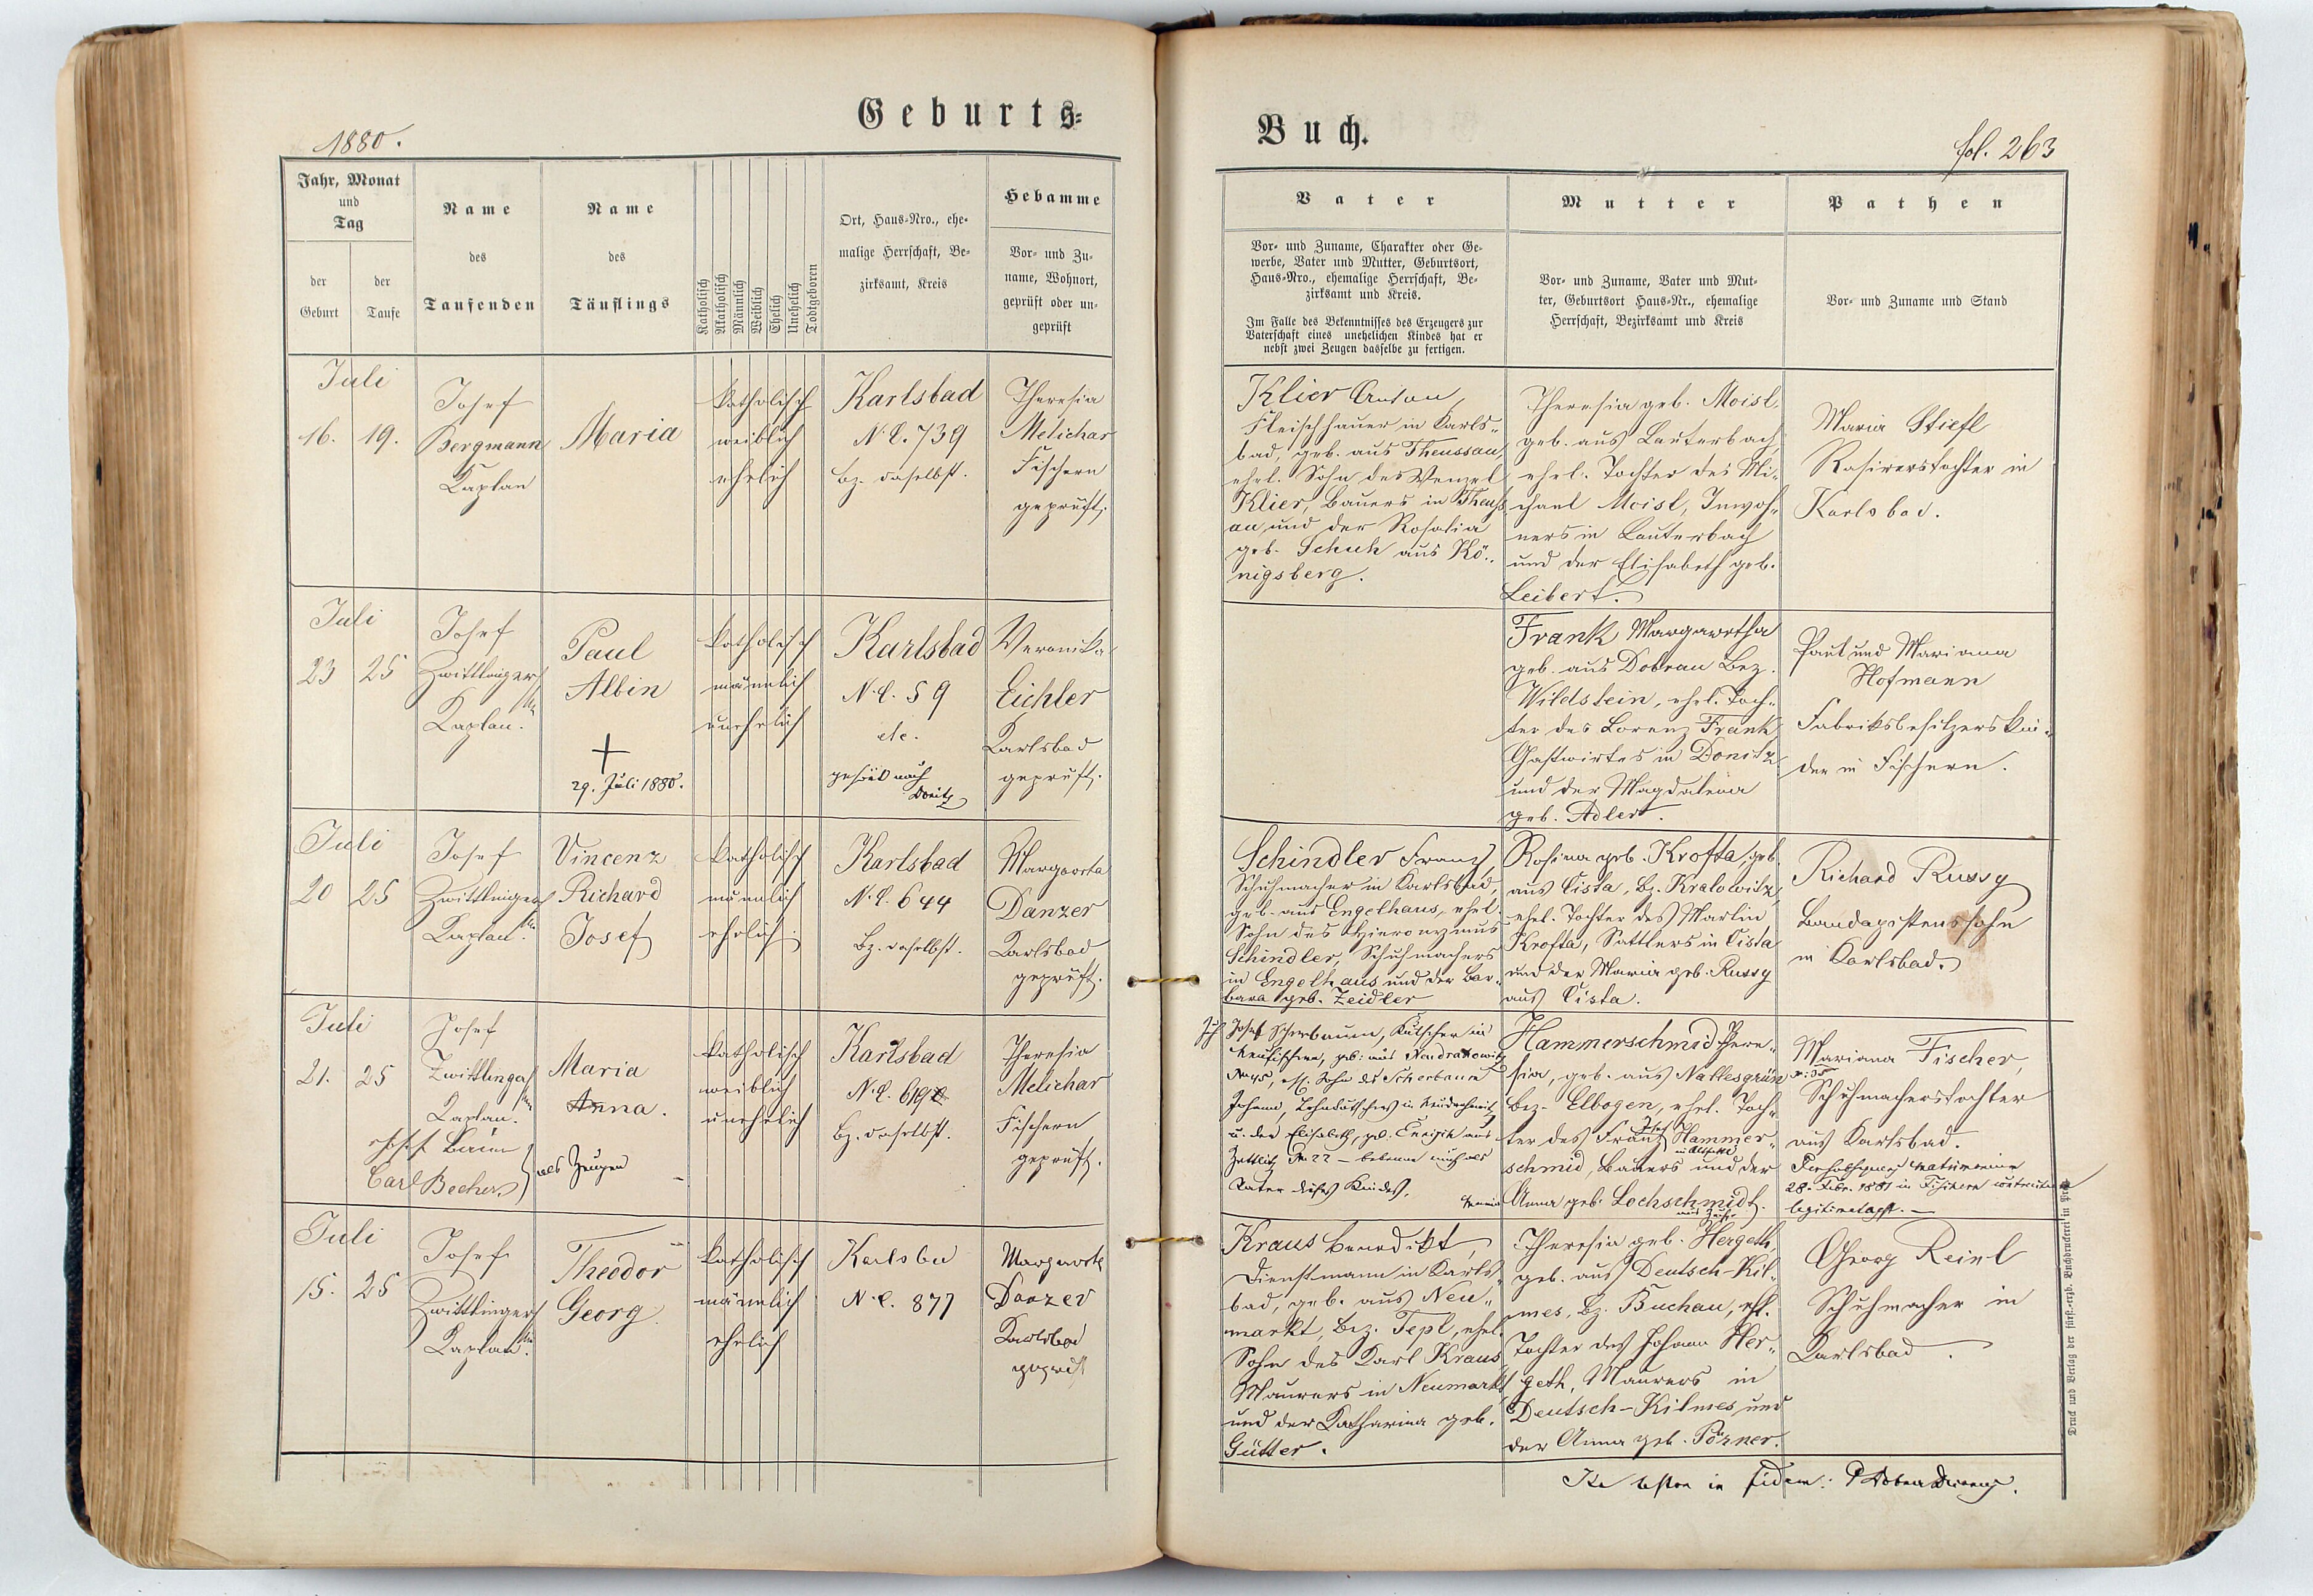 Geburts=
Buch.
1880.
fol. 263
Jahr, Monat
und
Tag
der
Geburt
der
Taufe
Name
des
Taufenden
Name
des
Täuflings
Katholisch
Akatholisch
Männlich
Weiblich
Ehelich
Unehelich
Todtgeboren
Ort, Haus=Nro., ehe=
malige Herrschaft, Be=
zirksamt, Kreis
Hebamme
Vor= und Zu=
name, Wohnort,
geprüft oder un=
geprüft
Vater
Vor= und Zuname, Charakter oder Ge=
werbe, Vater und Mutter, Geburtsort,
Haus=Nro., ehemalige Herrschaft, Be=
zirksamt und Kreis.
Im Falle des Bekenntnisses des Erzeugers zur
Vaterschaft eines unehelichen Kindes hat er
nebst zwei Zeugen dasselbe zu fertigen.
Mutter
Vor= und Zuname, Vater und Mut=
ter, Geburtsort Haus=Nr., ehemalige
Herrschaft, Bezirksamt und Kreis
Pathen
Vor= und Zuname und Stand
Juli
16.
19.
Josef
Bergmann
Kaplan
Maria
katholisch
weiblich
ehelich
Karlsbad
N.C. 739
Bz. daselbst.
Theresia
Melichar
Fischern
geprüft.
Klier Anton,
Fleischhauer in Karls=
bad, geb. aus Theussau,
ehel. Sohn des Wenzel
Klier, Bauers in Theuss
au, und der Rosalia
geb. Schuh aus Kö=
nigsberg.
Theresia geb. Moisl,
geb. aus Lauterbach,
ehel. Tochter des Mi=
chael Moisl, Inwoh=
ners in Lauterbach
und der Elisabeth geb.
Leibert.
Maria Stiefl
Rasirerstochter in
Karlsbad.
Juli
23
25
Josef
Zwittlinger
Kaplan.
Paul
Albin
+
29. Juli 1880.
katholisch
männlich
unehelich
Karlsbad
N.C. 59
etc.
gehört nach
Donitz
Veronika
Eichler
Karlsbad
geprüft.
Frank Margaretha
geb. aus Dobrau Bez.
Wildstein, ehel. Toch=
ter des Lorenz Frank
Gastwirtes in Donitz
und der Magdalena
geb. Adler.
Paul und Mariana
Hofmann
Fabriksbesitzerskin=
der in Fischern.
Juli
20
25
Josef
Zwittlinger
Kaplan.
Vincenz
Richard
Josef
katholisch
männlich
ehelich.
Karlsbad
N.C. 644
Bz. daselbst.
Margareta
Danzer
Karlsbad
geprüft.
Schindler Franz,
Schuhmacher in Karlsbad,
geb. aus Engelhaus, ehel.
Sohn des Hieronymus
Schindler, Schuhmachers
in Engelhaus und der Bar=
bara geb. Zeidler
Rosina geb. Krofta, geb.
aus Cista, Bz. Kralowitz,
ehel. Tochter des Martin
Krofta, Sattlers in Cista
und der Maria geb. Russy
aus Cista.
Richard Russy
Bandagistenssohn
in Karlsbad.
Juli
21.
25
Josef
Zwittlinger
Kaplan.
Josef Baum
Carl Becher
als Zeugen
Maria
Anna.
katholisch
weiblich
unehelich
Karlsbad
N.C. 619
Bz. daselbst.
Theresia
Melichar
Fischern
geprüft.
Ich Josef Scherbaum, Kutscher in
geb: aus
No 45, ehl. Sohn des Scherbaum
Johann,
u. der Elisabeth, geb.
Zettlitz No 22 – bekenne mich als
Vater dieses Kindes.
Hammerschmid There=
sia, geb. aus Nallesgrün
Bez. Elbogen, ehel. Toch=
ter des Franz Hammer=
schmid, Bauers und der
Anna geb. Lochschmidt.
Mariana Fischer,
Schuhmacherstochter
aus Karlsbad.
28. Febr. 1881 in Fischern
Juli
15.
25
Josef
Zwittlinger
Kaplan.
Theodor
Georg
katholisch
männlich
ehelich
Karlsbad
N.C. 877
Margareta
Danzer
Karlsbad
geprüft
Kraus Benedikt,
Dienstmann in Karls=
bad, geb. aus Neu=
markt, Bez. Tepl, ehel.
Sohn des Karl Kraus
Maurers in Neumarkt
und der Katharina geb.
Gütter.
Theresia geb. Hergeth,
geb. aus Deutsch-Kil=
mes, Bz. Buchau, ehl.
Tochter des Johann Her=
geth, Maurers in
Deutsch-Kilmes und
der Anna geb. Pörner.
Georg Reinl
Schuhmacher in
Karlsbad.
Druck und Verlag der fürst.=erzb. Buchdruckerei in Prag